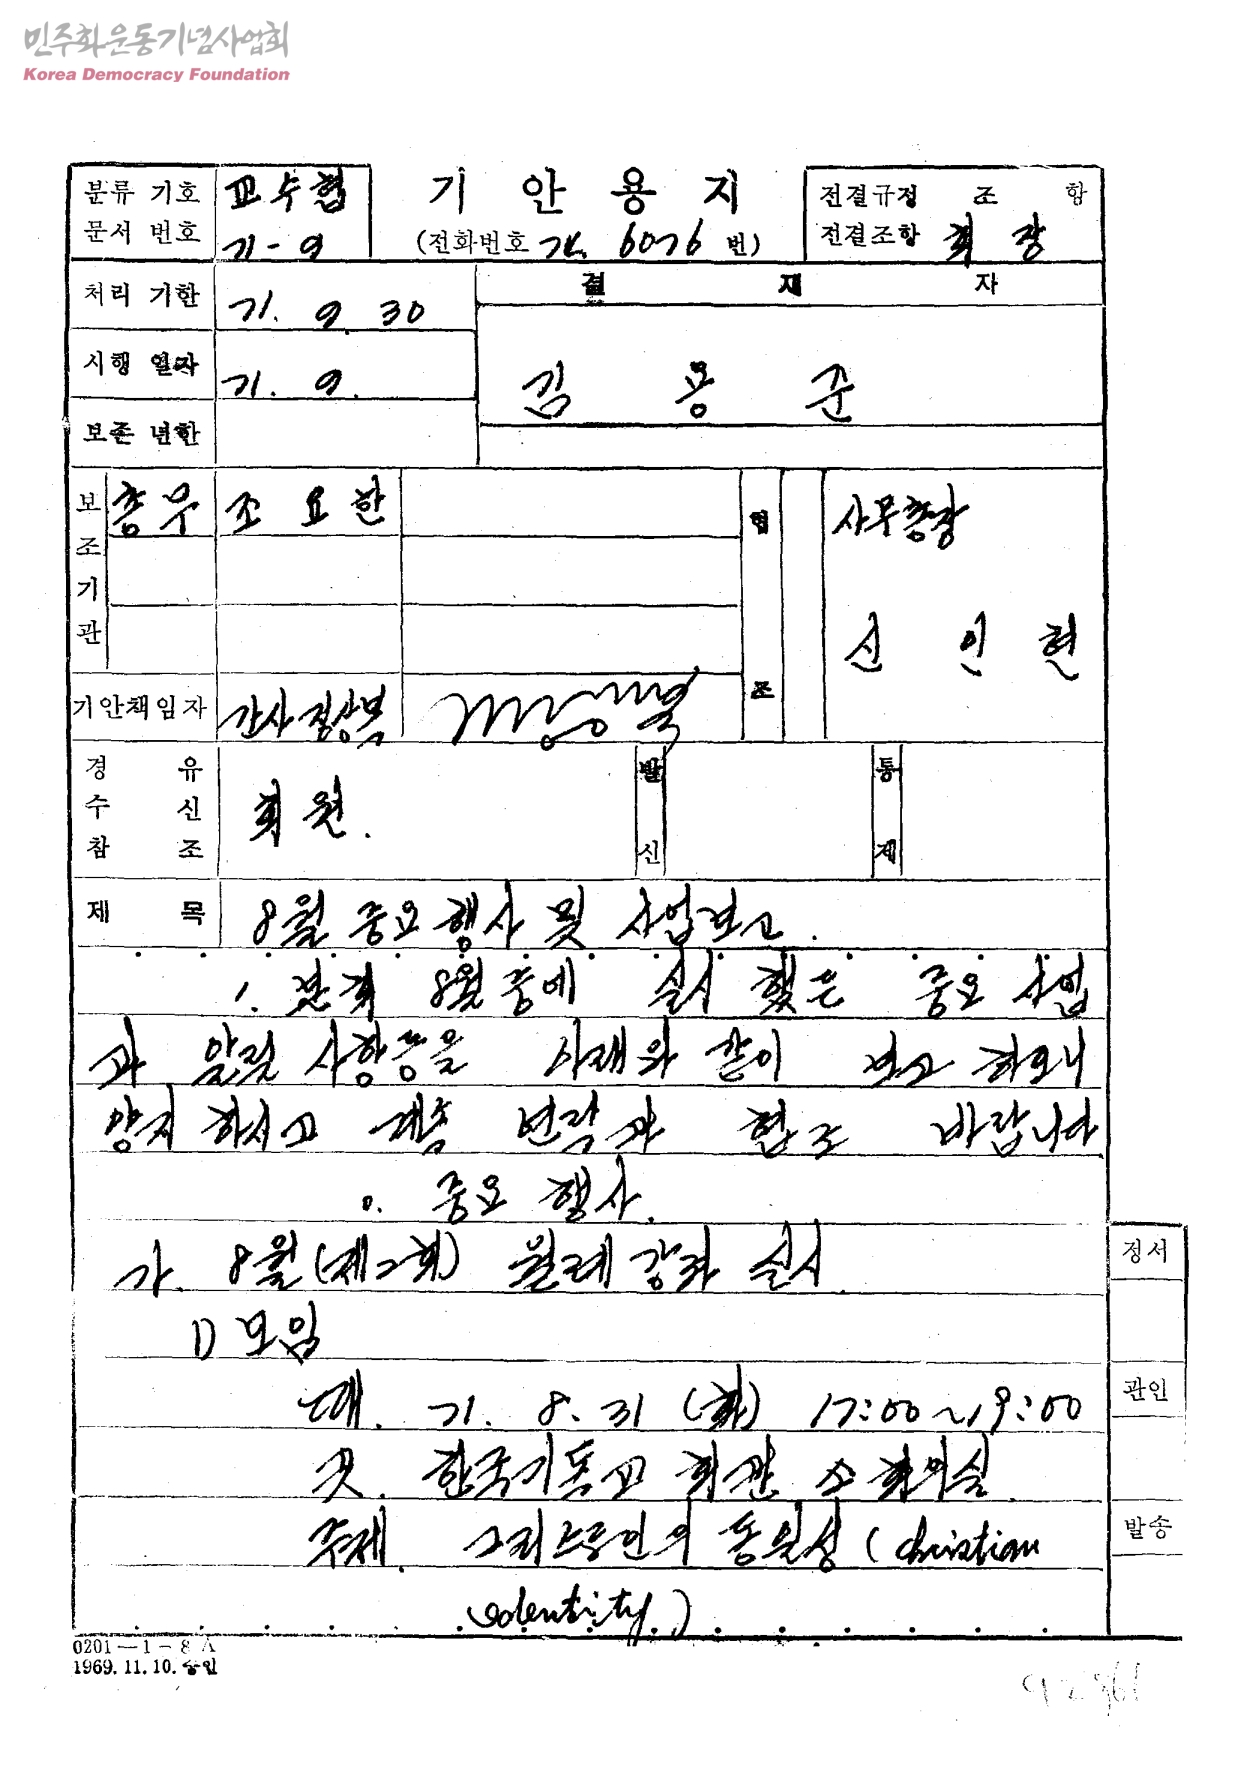 민주화운동기념사업회
Korea Democracy Foundation
분류 기호 교수협
문서 번호 71-9
기 안 용 지
(전화번호 74. 6076 번)
전결규정 조 항
전결조항 회장
처리 기한 71. 9. 30
결 재 자
시행 열자 71. 9.
김 용 준
보존 년한
보조기관
총무 조요한
협조
사무총장
신 인 현
기안책임자 간사 정상복
경 유
수 신
참 조
회원.
발신
통제
제 목 8월 중요행사 및 사업보고.
1. 본회 8월중에 실시 했은 중요 사업
과 알릴 사항등을 아래와 같이 보고 하오니
양지 하시고 계속 연락과 협조 바랍니다.
0. 중요 행사.
가. 8월(제2회) 월례 강좌 실시
정서
1) 모임
때. 71. 8. 31 (화) 17:00~19:00
관인
곳. 한국기독교 회관 소회의실.
주제. 그리스도인의 동일성 (christian
발송
identity)
0201-1-8A
1969.11.10. 승인